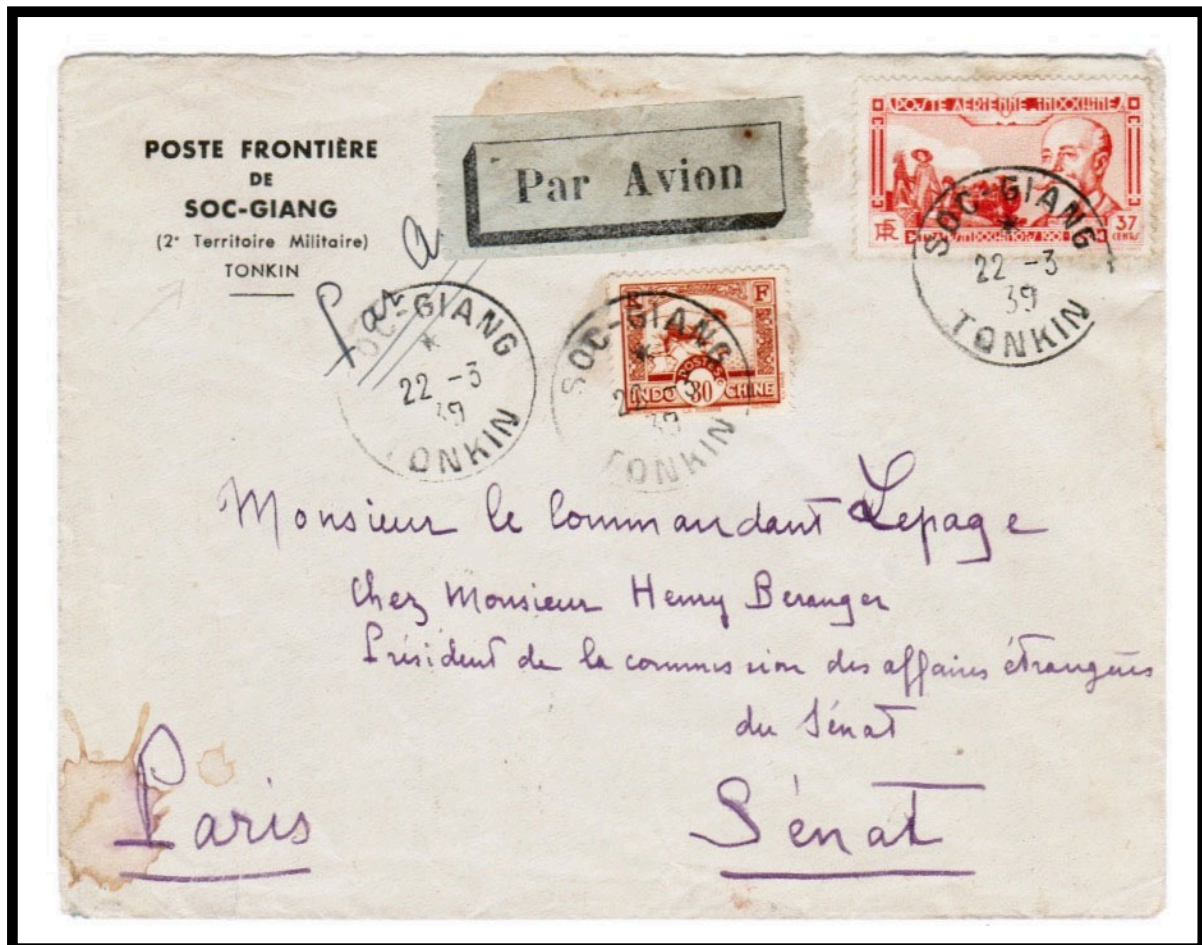 POSTE FRONTIÈRE
DE
SOC-GIANG
(2e Territoire Militaire)
TONKIN
Par Avion
Par a
POSTE AERIENNE INDOCHINE
RF
37
CENTS
SOC-GIANG
22 -3
39
TONKIN
R F
POSTES
INDO 30 CHINE
SOC-GIANG
22 -3
39
TONKIN
OC-GIANG
22 -3
39
TONKIN
Monsieur le Commandant Lepage
Chez Monsieur Henry Beranger
Président de la commission des affaires étrangères
du Sénat
Paris
Sénat